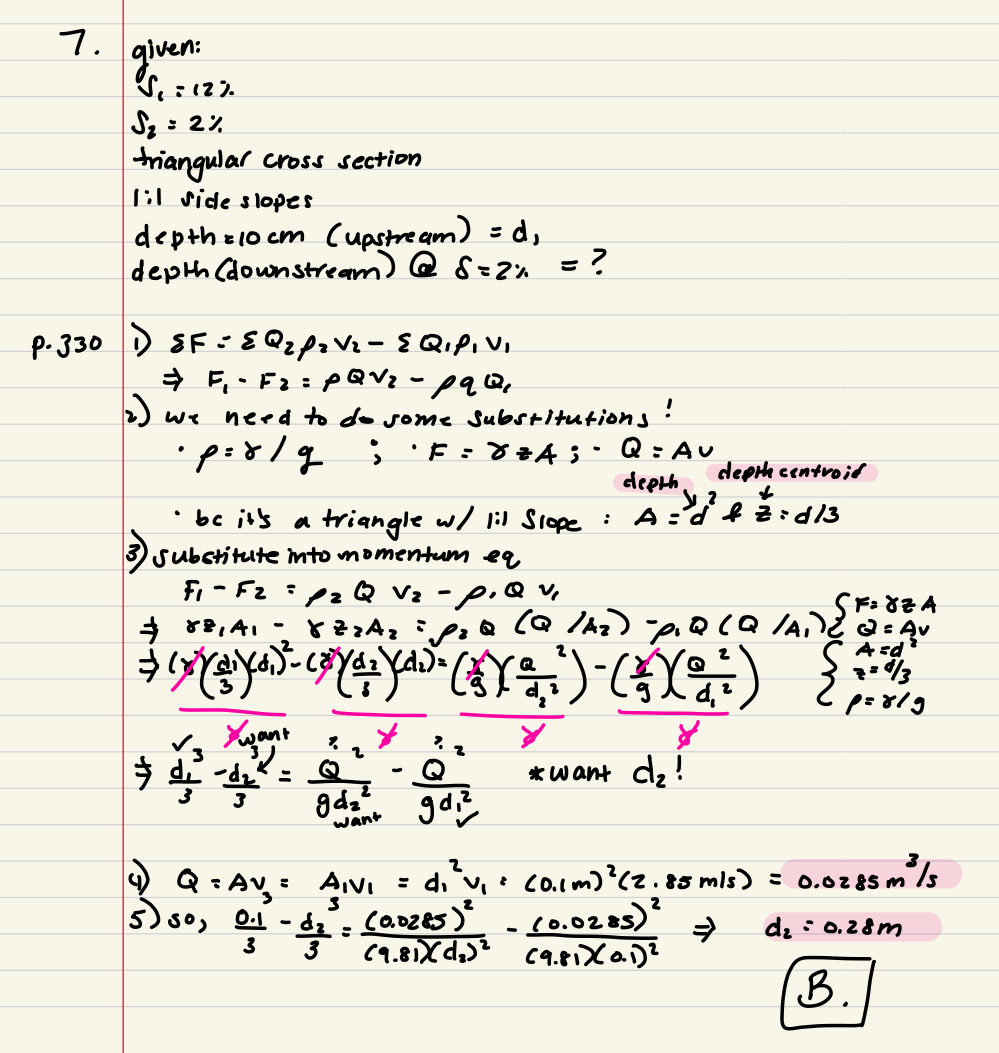 7. given:
S₁ = 12%
S₂ = 2%
triangular cross section
1:1 side slopes
depth = 10 cm (upstream) = d₁
depth (downstream) @ S = 2% = ?
p. 330 1) ΣF = ΣQ₂ρ₂v₂ - ΣQ₁ρ₁v₁
⇒ F₁ - F₂ = ρQv₂ - ρqQ₁
2) we need to do some substitutions!
· ρ = γ/g ; · F = γzA ; · Q = Av
depth depth centroid
· bc it's a triangle w/ 1:1 slope : A = d² & z = d/3
3) substitute into momentum eq
F₁ - F₂ = ρ₂Q v₂ - ρ₁Q v₁
⇒ γz₁A₁ - γz₂A₂ = ρ₂Q (Q/A₂) - ρ₁Q (Q/A₁) { F = γzA
Q = Av
⇒ (γ)(d₁/3)(d₁)² - (γ)(d₂/3)(d₂) = (γ/g)(Q²/d₂²) - (γ/g)(Q²/d₁²) { A = d²
z = d/3
ρ = γ/g
γ γ γ γ
✓ want ? ?
⇒ d₁³/3 - d₂³/3 = Q²/gd₂² - Q²/gd₁² *want d₂!
want ✓
4) Q = Av = A₁v₁ = d₁²v₁ = (0.1m)²(2.85 m/s) = 0.0285 m³/s
5) so, 0.1³/3 - d₂³/3 = (0.0285)²/(9.81)(d₂)² - (0.0285)²/(9.81)(0.1)² ⇒ d₂ = 0.28m
B.